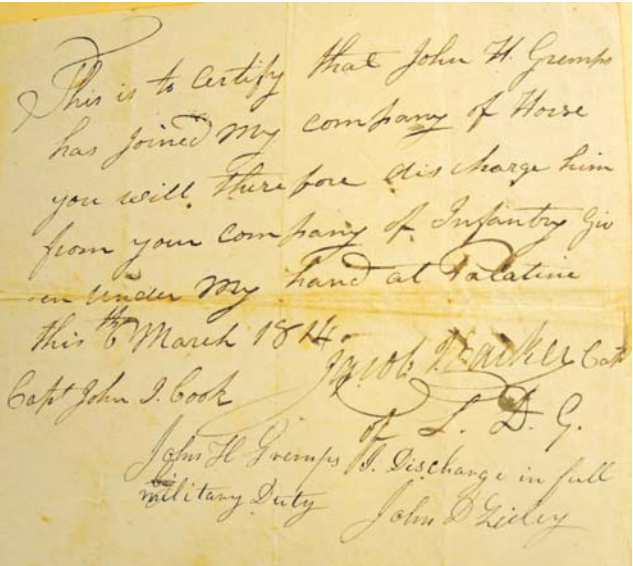 This is to Certify that John H. Gremps
has Joined My company of Horse
you will therefore discharge him
from your company of Infantry Giv
en under My hand at Palatine
this 6th March 1814
Jacob Capt
Capt John I. Cook
of L. D. G.
John H Gremps I. Discharge in full
military Duty
John D